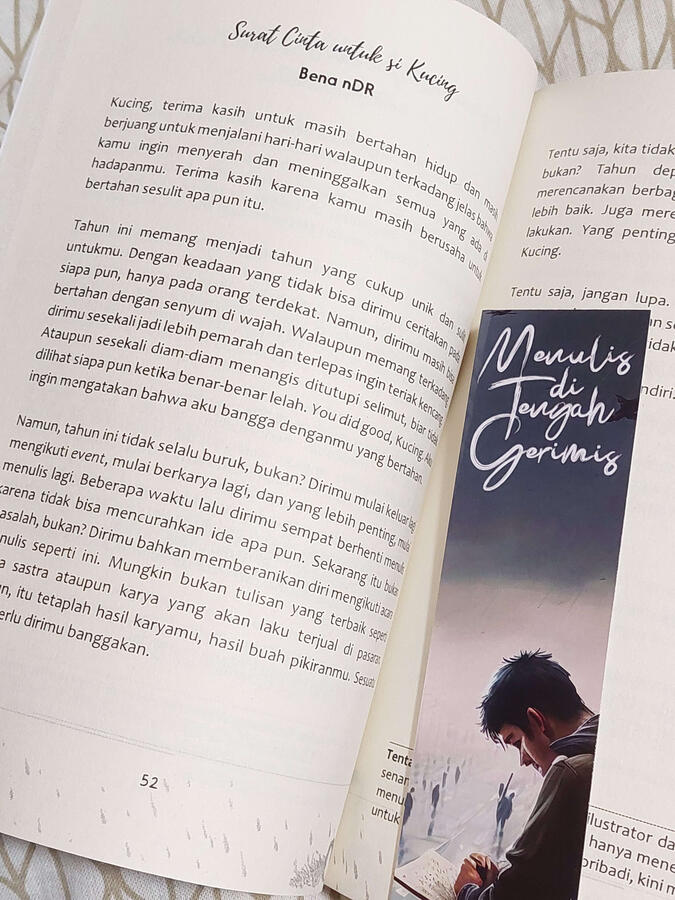 Surat Cinta untuk si Kucing
Bena nDR
Kucing, terima kasih untuk masih bertahan hidup dan masih
berjuang untuk menjalani hari-hari walaupun terkadang jelas bahwa
kamu ingin menyerah dan meninggalkan semua yang ada di
hadapanmu. Terima kasih karena kamu masih berusaha untuk
bertahan sesulit apa pun itu.
Tahun ini memang menjadi tahun yang cukup unik dan sulit
untukmu. Dengan keadaan yang tidak bisa dirimu ceritakan pada
siapa pun, hanya pada orang terdekat. Namun, dirimu masih bisa
bertahan dengan senyum di wajah. Walaupun memang terkadang
dirimu sesekali jadi lebih pemarah dan terlepas ingin teriak kencang.
Ataupun sesekali diam-diam menangis ditutupi selimut, biar tidak
dilihat siapa pun ketika benar-benar lelah. You did good, Kucing. Aku
ingin mengatakan bahwa aku bangga denganmu yang bertahan.
Namun, tahun ini tidak selalu buruk, bukan? Dirimu mulai keluar lagi
mengikuti event, mulai berkarya lagi, dan yang lebih penting, mulai
menulis lagi. Beberapa waktu lalu dirimu sempat berhenti menulis
karena tidak bisa mencurahkan ide apa pun. Sekarang itu bukan
asalah, bukan? Dirimu bahkan memberanikan diri mengikuti acara
nulis seperti ini. Mungkin bukan tulisan yang terbaik seperti
a sastra ataupun karya yang akan laku terjual di pasaran.
un, itu tetaplah hasil karyamu, hasil buah pikiranmu. Sesuatu
erlu dirimu banggakan.
52
Tentu saja, kita tidak
bukan? Tahun dep
merencanakan berbag
lebih baik. Juga mere
lakukan. Yang penting
Kucing.
Tentu saja, jangan lupa.
n se
tidak
ndiri.
Menulis
di
Tengah
Gerimis
Tenta
senan
menu
untuk
ilustrator da
hanya mene
pribadi, kini m